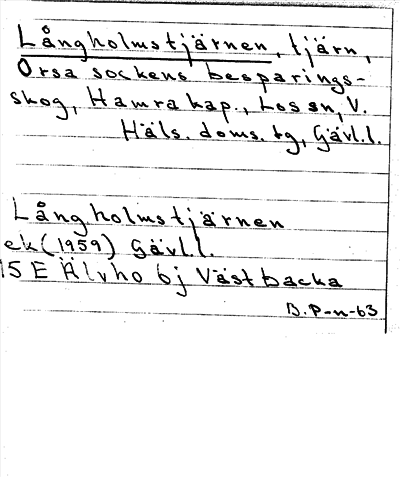 Långholmstjärnen, tjärn,
Orsa sockens besparings-
skog, Hamra kap., Los sn, V.
Häls. doms. tg, Gävl.l.
Långholmstjärnen
ek (1959) Gävl.l.
15 E Älvho 6j Västbacka
B. P-n-63